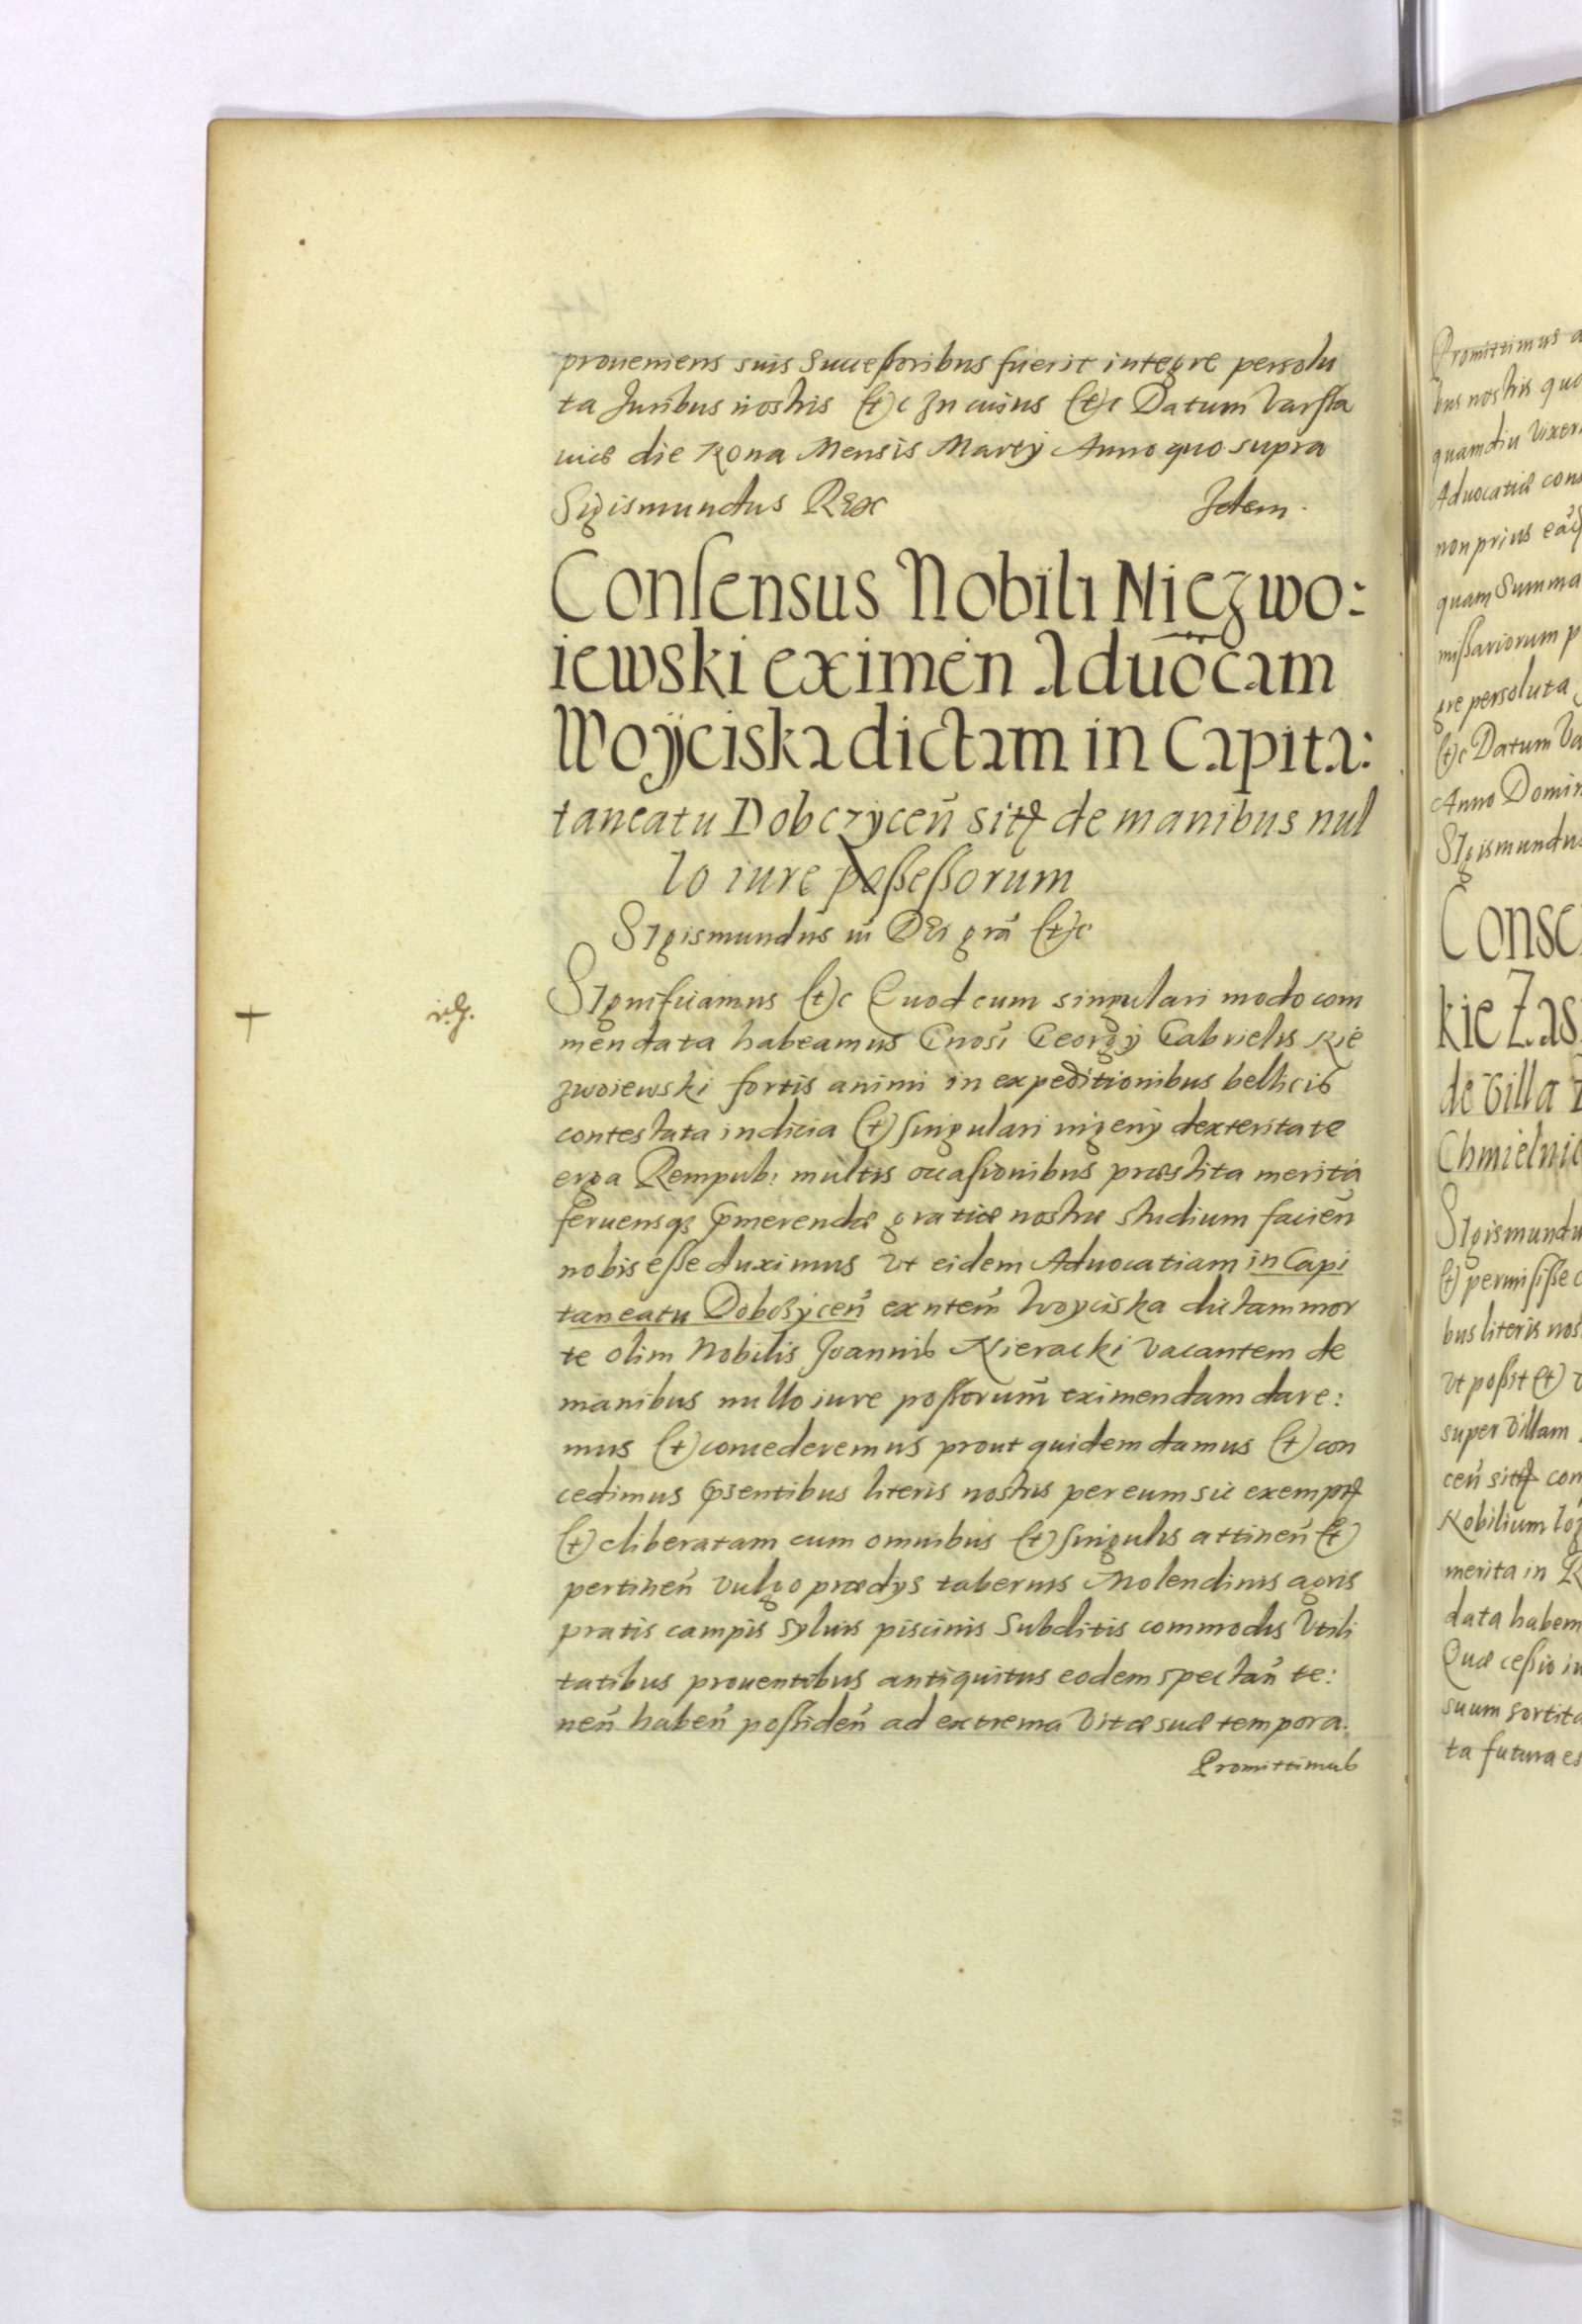 proueniens suis Successoribus fuerit integre persolu
ta Juribus nostris etc In cuius etc Datum Varsta
uiæ die Nona Mensis Martÿ Anno quo supra
Sigismundus Rex Idem.
Consensus Nobili Niezwo:
iewski eximeñ Aduocam
Woÿciska dictam in Capita:
taneatu Dobczyceñ sitã de manibus nul
lo iure possessorum
Sigismundus iii DEI grã etc
Significamus etc Quod cum singulari modo com
mendata habeamus Gnosi Georgÿ Gabrielis Nie
zwoiewski fortis animi in expeditionibus bellicis
contestata indicia et singulari ingenÿ dexteritate
erga Rempub: multis occasionibus præstita merita
feruensq; promerendæ gratiæ nostræ studium facieñ
nobis esse duximus vt eidem Aduocatiam in Capi
taneatu Dobczÿceñ exntem̃ Woyciska dictam mor
te olim Nobilis Joannis Nieracki vacantem de
manibus nullo iure possorum̃ eximendam dare:
mus et concederemus prout quidem damus et con
cedimus p̃sentibus literis nostris per eum sic exemptã
et eliberatam cum omnibus et singulis attineñ et
pertineñ vulgo prædys tabernis Molendinis agris
pratis campis syluis piscinis subditis commodis vtili
tatibus prouentibus antiquitus eodem spectañ te:
neñ habeñ possideñ ad extrema vitæ suæ tempora.
Promittimus
Promittimus a
bus nostris quo
quamdiu vixer
Aduocatiæ cons
non prius eã
quam Summa
missariorum p
gre persoluta
etc Datum Va
Anno Domin
Sigismundus
Conse
kie Zas
de villa
Chmielnic
Sigismundu
et permisisse
bus literis nos
vt possit et
super villam
ceñ sitã con
Nobilium
merita in R
data habem
Quæ cessio in
suum sortita
ta futura es